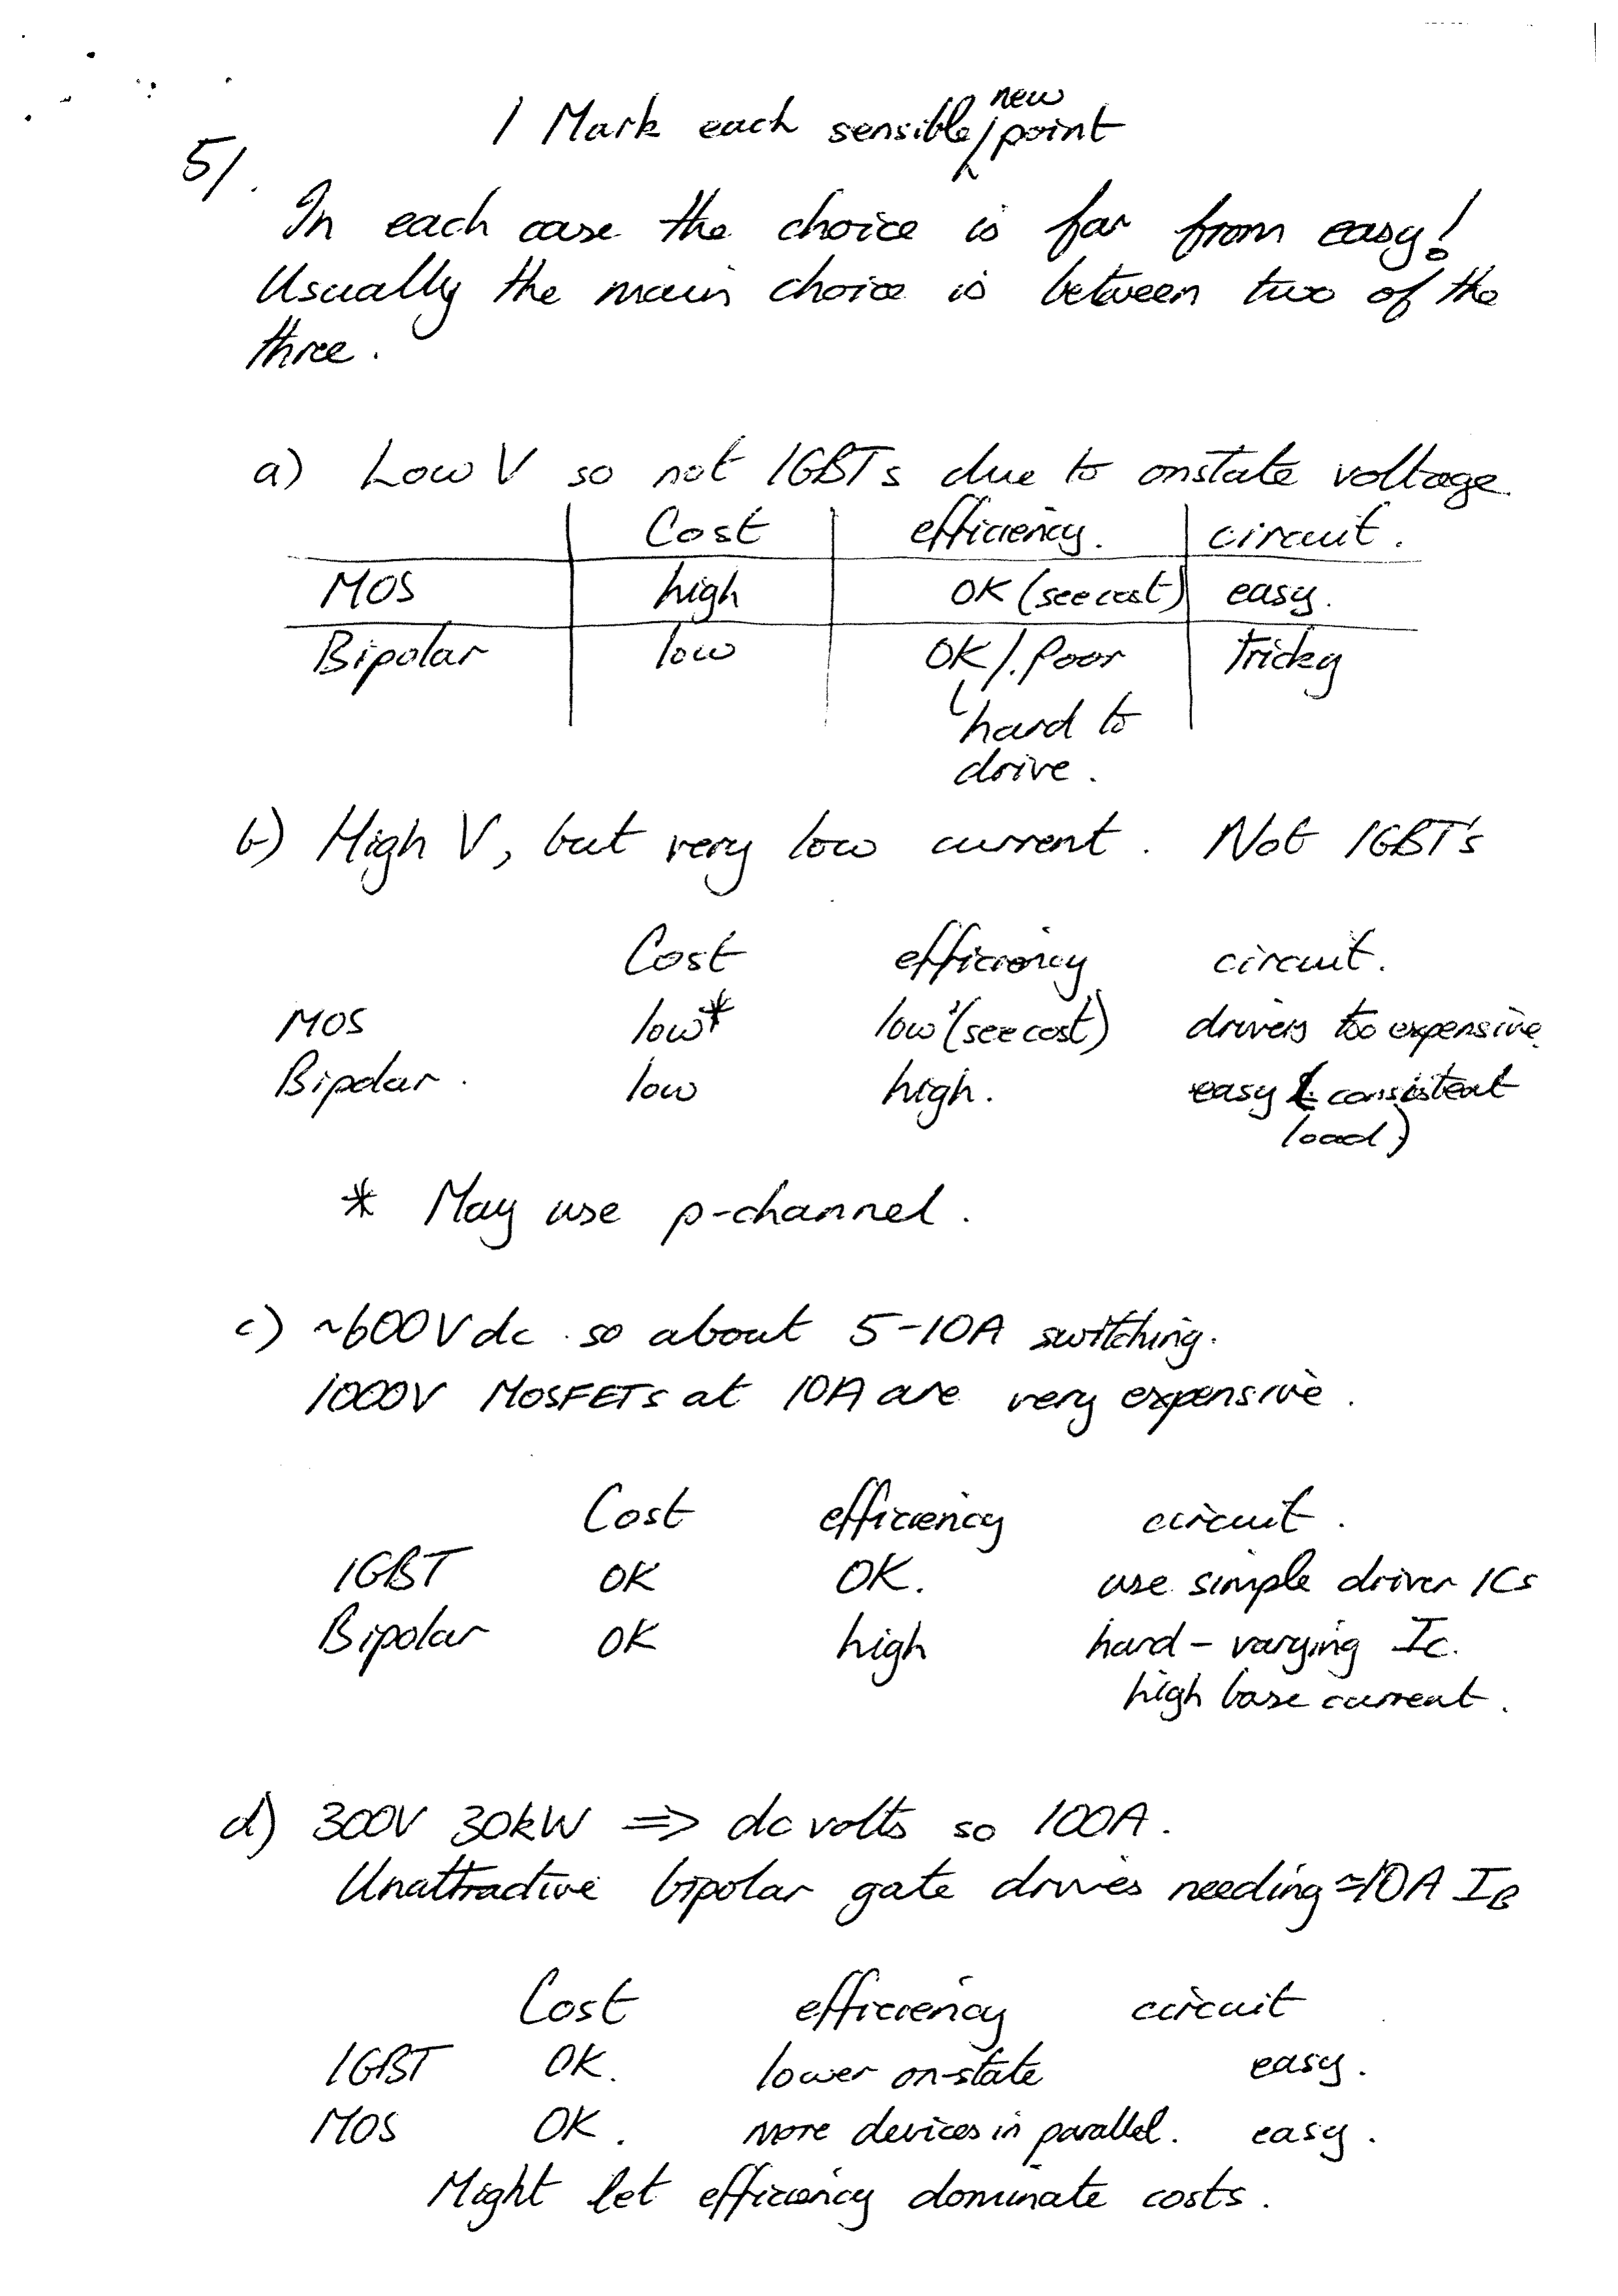 1 Mark each sensible new point
5/.
In each case the choice is far from easy!
Usually the main choice is between two of the
three.
a) Low V so not IGBTs due to onstate voltage.
Cost efficiency. circuit.
MOS high OK (see cost) easy.
Bipolar low OK/. Poor tricky
hard to
drive.
b) High V, but very low current. Not IGBT's
Cost efficiency circuit.
MOS low* low (see cost) drivers too expensive.
Bipolar. low high. easy (consistent
load)
* May use p-channel.
c) ~600V dc so about 5-10A switching.
1000V MOSFETs at 10A are very expensive.
Cost efficiency circuit.
IGBT OK OK. use simple driver ICs
Bipolar OK high hard - varying Ic.
high base current.
d) 300V 30kW => dc volts so 100A.
Unattractive bipolar gate drives needing ≈10A IB
Cost efficiency circuit
IGBT OK. lower on-state easy.
MOS OK. more devices in parallel. easy.
Might let efficiency dominate costs.